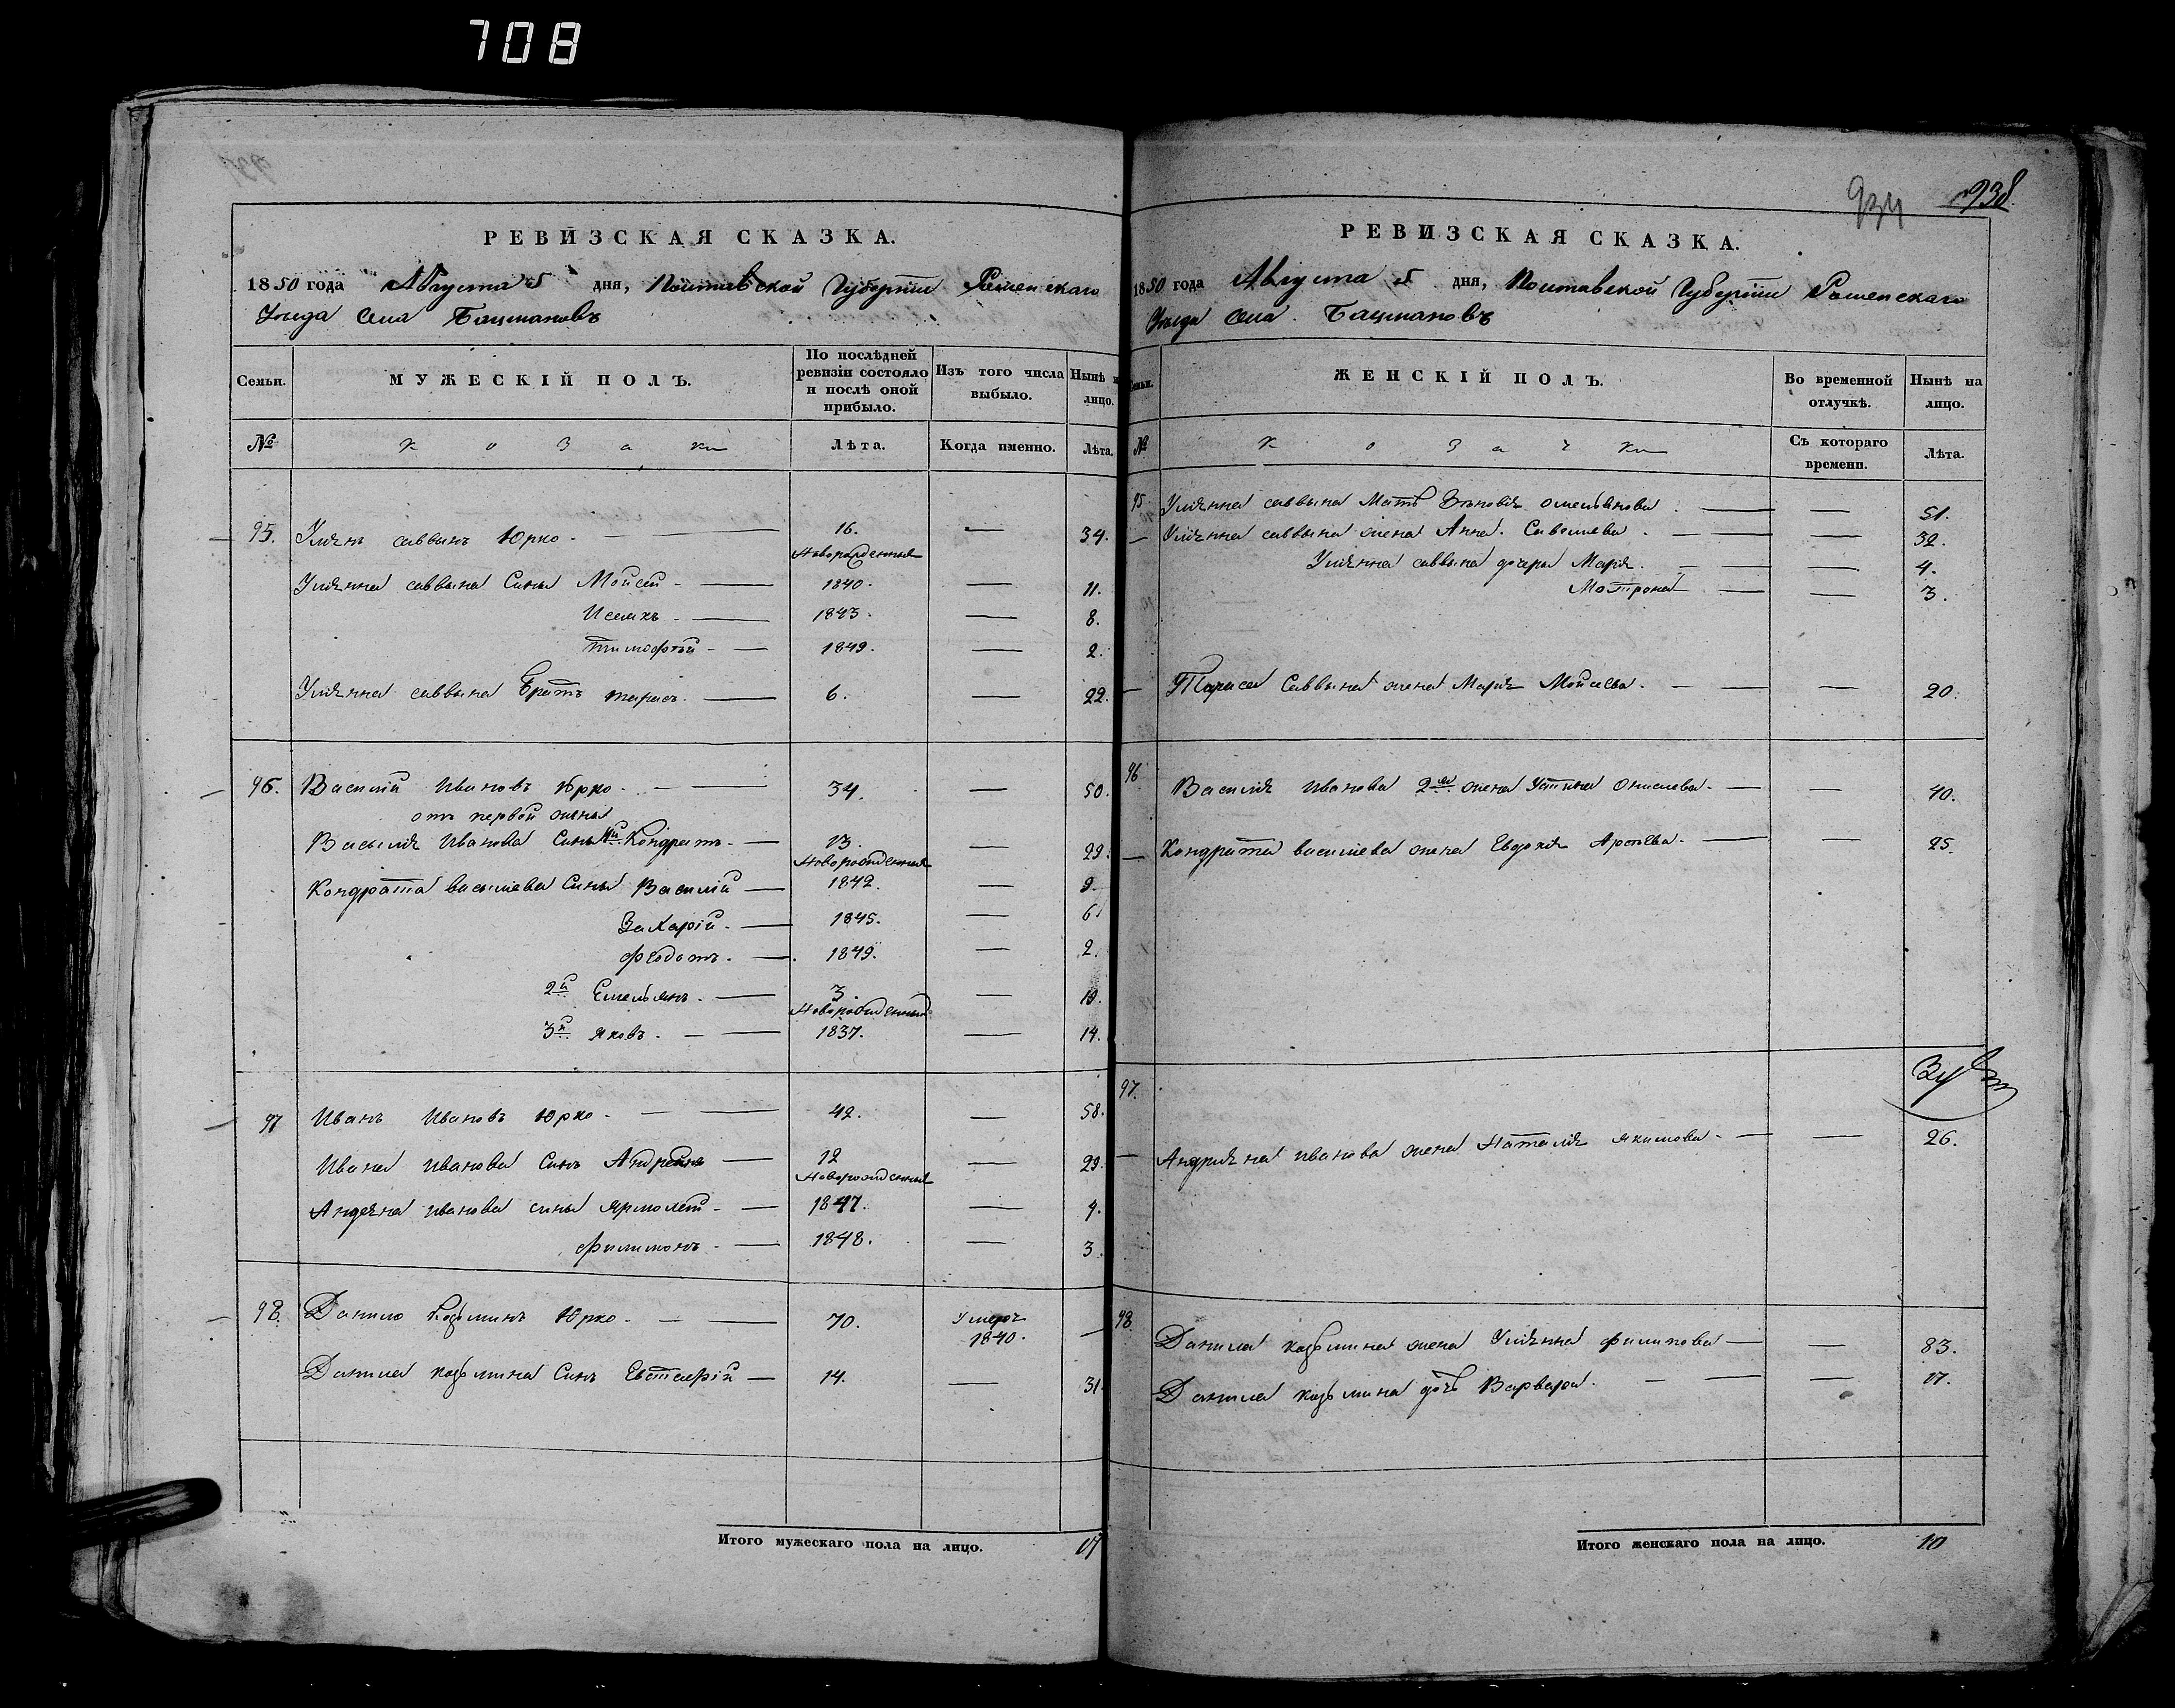 708
РЕВИЗСКАЯ СКАЗКА.
1850 года Августа 5 дня, Полтавской Губерніи Роменскаго
Уѣзда Села Бацмановъ
Семьи.
МУЖЕСКІЙ ПОЛЪ.
По послѣдней ревизіи состояло и послѣ оной прибыло.
Изъ того числа выбыло.
Нынѣ на лицо.
№
Козаки
Лѣта.
Когда именно.
Лѣта.
95. Улѣянъ саввинъ Юрко 16. 34.
Новорожденныя
Улѣяна саввына Сыны Мойсей 1840. 11.
Исаакъ 1843. 8.
Тимофѣй 1849. 2.
Улѣяна саввына Братъ тарасъ 6. 22.
96. Василій Ивановъ Юрко 34. 50.
отъ первой жены
Василія Иванова Сыны 1й Кондратъ 13. 29.
Новорожденныя
Кондрата василіева Сыны Василій 1842. 9.
Захарій 1845. 6.
Федотъ 1849. 2.
2й Емельянъ 3. 19.
Новорожденный
3й Яковъ 1837. 14.
97 Иванъ Ивановъ Юрко 42. 58.
Ивана Иванова Сынъ Андреянъ 12 29.
Новорожденныя
Андреяна иванова сыны Ярмолай 1847. 4.
Филимонъ 1848. 3.
98. Данило Козьминъ Юрко 70. Умеръ 1840.
Данила козьмина Сынъ Евстафій 14. 31.
Итого мужескаго пола на лицо. 17
934 938
РЕВИЗСКАЯ СКАЗКА.
1850 года Августа 5 дня, Полтавской Губерніи Роменскаго
Уѣзда Села Бацмановъ
Семьи.
ЖЕНСКІЙ ПОЛЪ.
Во временной отлучкѣ.
Нынѣ на лицо.
№
Козачки
Съ котораго времени.
Лѣта.
95 Улѣяна саввына Мать Зѣновія омельянова 51.
Улѣяна саввына жена Анна Савельева 32.
Улѣяна саввына дочери Марія 4.
Мотрона 3.
Тараса Саввына жена Марія Мойсѣева 20.
96 Василія Иванова 2я жена Устина Онисиева 40.
Кондрата василіева жена Евдокія Арѳіева 25.
97.
Андріяна иванова жена Наталія якимова 26.
98 Данила козьмина жена Улѣяна филипова 83.
Данила козьмина дочь Варвара 17.
Итого женскаго пола на лицо. 10